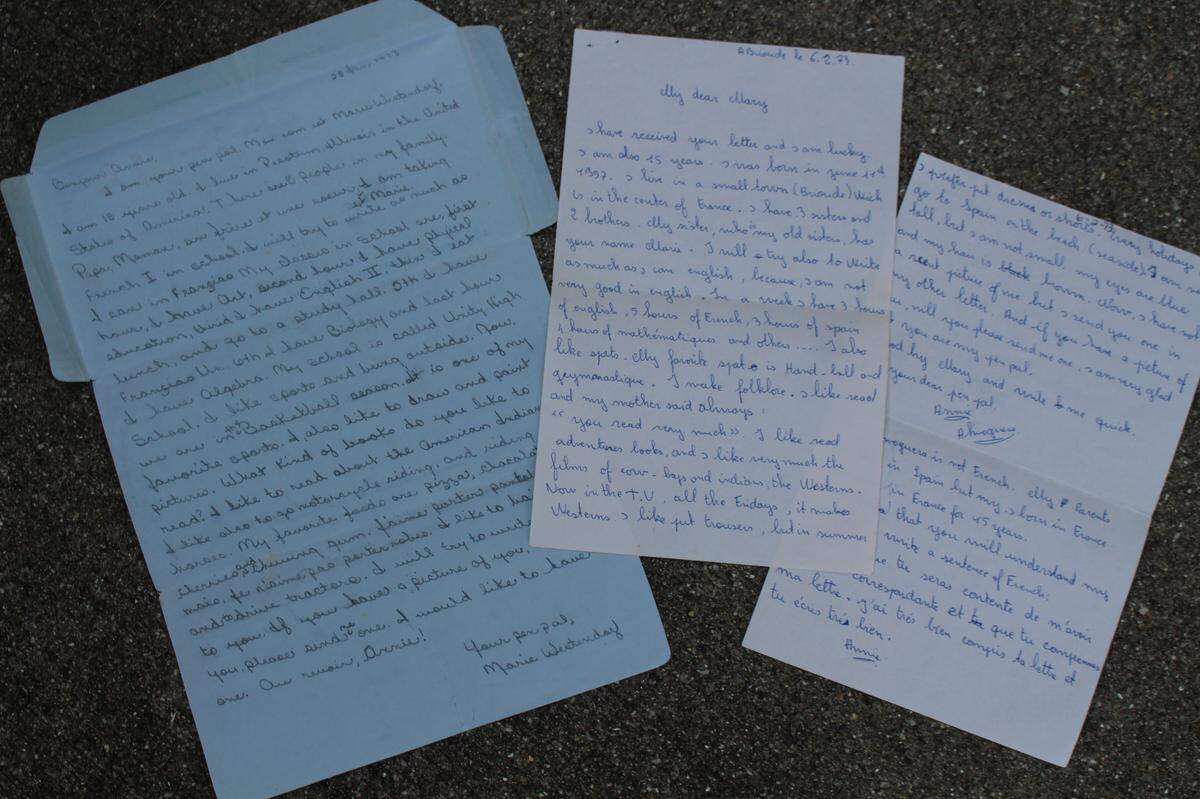 Bonjour Annie,
I am your pen pal. Mon nom est Marie Westendorf.
I am 15 years old. I live in Peotone, Illinois in the United
States of America. There are people in my family.
Papa, Maman, un frère et une soeur. I am taking
French I in school. I will try to write as much as
I can in Français. My classes in school are, first
hour, I have Art, second hour I have physical
education, third I have English II, then I eat
lunch, and go to a study hall. 5th I have
Français Un. 6th I have Biology and last hour
I have Algebra. My school is called Unity High
School. I like sports and being outside. Now,
we are in Basketball season, it is one of my
favorite sports. I also like to draw and paint
pictures. What kind of books do you like to
read? I like to read about the American Indian
I like also to go motorcycle riding, and riding
horses. My favorite foods are pizza,
cherries, and chewing gum. J'aime porter
I like to
and drive tractors. I will try to
to you. If you have a picture of you,
you, please send me one. I would like to have
one. Au revoir, Annie!
Your pen pal,
Marie Westendorf
A Brioude le 6.2.73.
My dear Mary
I have received your letter and I am lucky.
I am also 15 years. I was born in June
I live in a small town (Brioude) Wich
is in the center of France. I have 3 sisters and
2 brothers. My sister, who my old sisters, has
your name Marie. I will try also to write
as much as I can english, because, I am not
very good in english. In a week I have 3 hours
of english, 5 hours of French, 3 hours of spain
4 hours of mathématiques and others ..... I also
like spots. My favorite spot is Hand-ball and
geymonastique. I make folklore. I like read
and my mother said always:
“ you read very much ». I like read
adventures books, and I like very much the
films of cow-boys and indians, the Westerns.
Now in the T.V, all the Fridays, it makes
Westerns I like put trousers, but in summer
6-2-73
I prefer put dresses or shorts. My holidays
go to Spain or the beach (seaside). I am not
tall, but I am not small my eyes are blue
and my hair is brown. Now, I have not
a recent picture of me but I send you one in
my other letter. And if you have a picture of
you, will you please send me one. I am very glad
you are my pen pal.
by Mary and write to me quick.
your dear pen pal
Annie
is not French. My Parents
in Spain but my, I born in France
in France for 15 years.
that you will understand my
write a sentence of French:
que tu seras contente de m'avoir
correspondante et que tu comprennes
ma lettre. J'ai très bien compris ta lettre et
tu écris très bien.
Annie